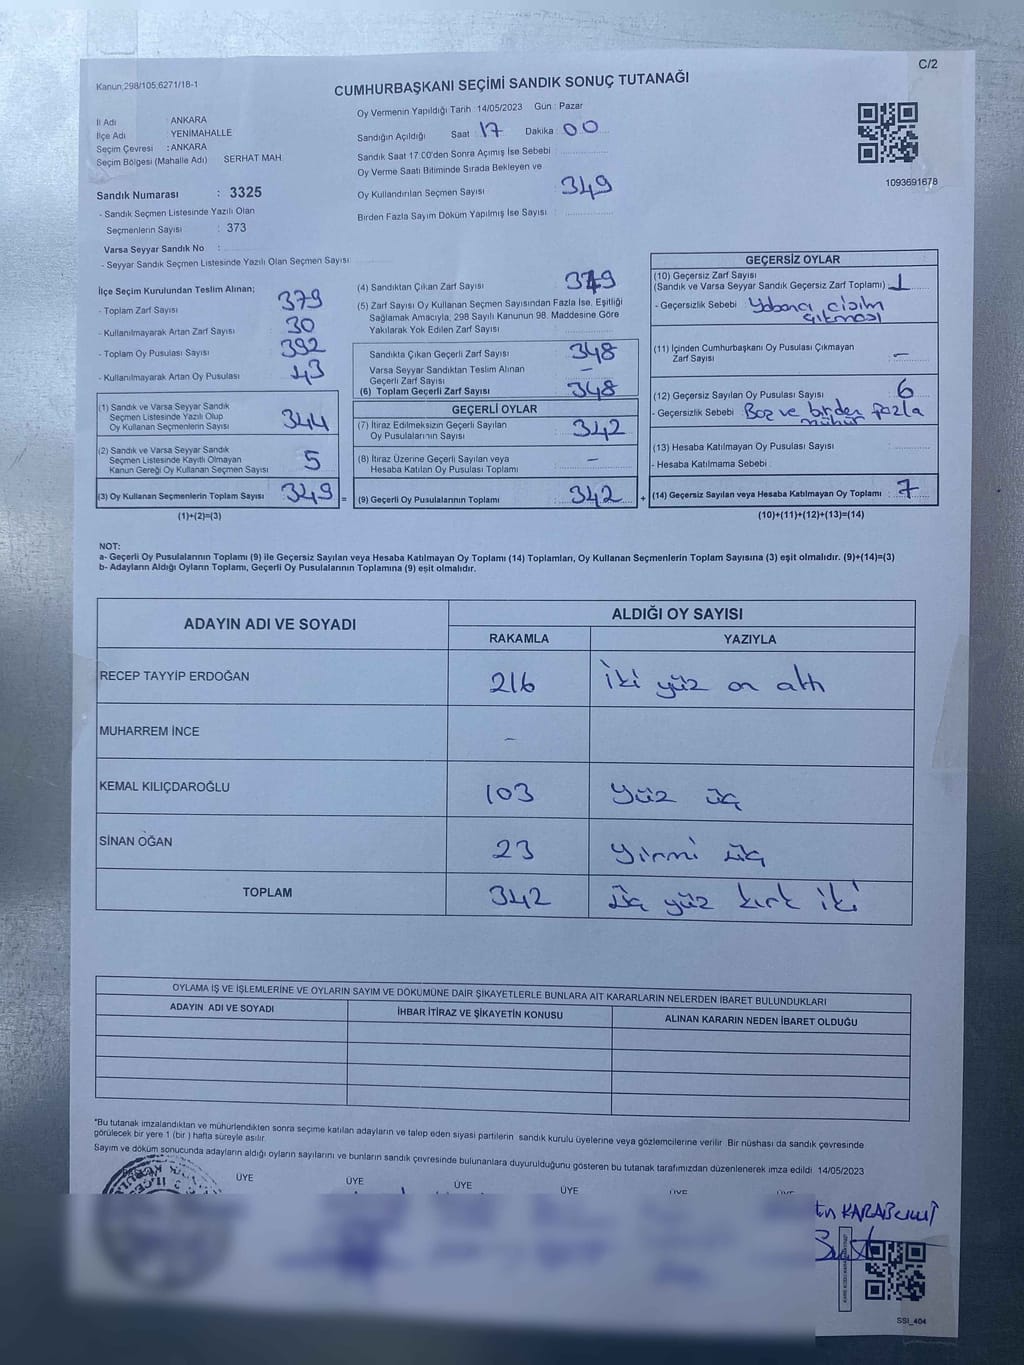 C/2
Kanun,298/105,6271/18-1
CUMHURBAŞKANI SEÇİMİ SANDIK SONUÇ TUTANAĞI
İl Adı ANKARA
İlçe Adı YENİMAHALLE
Seçim Çevresi : ANKARA
Seçim Bölgesi (Mahalle Adı) SERHAT MAH.
Sandık Numarası : 3325
- Sandık Seçmen Listesinde Yazılı Olan
Seçmenlerin Sayısı : 373
Varsa Seyyar Sandık No :
- Seyyar Sandık Seçmen Listesinde Yazılı Olan Seçmen Sayısı
Oy Vermenin Yapıldığı Tarih : 14/05/2023 Gün : Pazar
Sandığın Açıldığı Saat 17 Dakika : 00
Sandık Saat 17:00'den Sonra Açımış İse Sebebi :
Oy Verme Saati Bitiminde Sırada Bekleyen ve
Oy Kullandırılan Seçmen Sayısı : 349
Birden Fazla Sayım Döküm Yapılmış İse Sayısı :
1093691678
İlçe Seçim Kurulundan Teslim Alınan;
- Toplam Zarf Sayısı : 379
- Kullanılmayarak Artan Zarf Sayısı : 30
- Toplam Oy Pusulası Sayısı : 392
- Kullanılmayarak Artan Oy Pusulası : 43
(1) Sandık ve Varsa Seyyar Sandık
Seçmen Listesinde Yazılı Olup
Oy Kullanan Seçmenlerin Sayısı : 344
(2) Sandık ve Varsa Seyyar Sandık
Seçmen Listesinde Kayıtlı Olmayan
Kanun Gereği Oy Kullanan Seçmen Sayısı : 5
(3) Oy Kullanan Seçmenlerin Toplam Sayısı : 349 =
(1)+(2)=(3)
(4) Sandıktan Çıkan Zarf Sayısı : 349
(5) Zarf Sayısı Oy Kullanan Seçmen Sayısından Fazla İse, Eşitliği
Sağlamak Amacıyla, 298 Sayılı Kanunun 98. Maddesine Göre
Yakılarak Yok Edilen Zarf Sayısı
Sandıkta Çıkan Geçerli Zarf Sayısı : 348
Varsa Seyyar Sandıktan Teslim Alınan
Geçerli Zarf Sayısı : –
(6) Toplam Geçerli Zarf Sayısı : 348
GEÇERLİ OYLAR
(7) İtiraz Edilmeksizin Geçerli Sayılan
Oy Pusulalarının Sayısı : 342
(8) İtiraz Üzerine Geçerli Sayılan veya
Hesaba Katılan Oy Pusulası Toplamı : –
(9) Geçerli Oy Pusulalarının Toplamı : 342 +
GEÇERSİZ OYLAR
(10) Geçersiz Zarf Sayısı
(Sandık ve Varsa Seyyar Sandık Geçersiz Zarf Toplamı) : 1
- Geçersizlik Sebebi : Yabancı cisim
çıkması
(11) İçinden Cumhurbaşkanı Oy Pusulası Çıkmayan
Zarf Sayısı : –
(12) Geçersiz Sayılan Oy Pusulası Sayısı : 6
- Geçersizlik Sebebi : Boş ve birden fazla
mühür
(13) Hesaba Katılmayan Oy Pusulası Sayısı :
- Hesaba Katılmama Sebebi :
(14) Geçersiz Sayılan veya Hesaba Katılmayan Oy Toplamı : 7
(10)+(11)+(12)+(13)=(14)
NOT:
a- Geçerli Oy Pusulalarının Toplamı (9) ile Geçersiz Sayılan veya Hesaba Katılmayan Oy Toplamı (14) Toplamları, Oy Kullanan Seçmenlerin Toplam Sayısına (3) eşit olmalıdır. (9)+(14)=(3)
b- Adayların Aldığı Oyların Toplamı, Geçerli Oy Pusulalarının Toplamına (9) eşit olmalıdır.
ADAYIN ADI VE SOYADI ALDIĞI OY SAYISI
RAKAMLA YAZIYLA
RECEP TAYYİP ERDOĞAN 216 iki yüz on altı
MUHARREM İNCE –
KEMAL KILIÇDAROĞLU 103 yüz üç
SİNAN OĞAN 23 yirmi üç
TOPLAM 342 üç yüz kırk iki
OYLAMA İŞ VE İŞLEMLERİNE VE OYLARIN SAYIM VE DÖKÜMÜNE DAİR ŞİKAYETLERLE BUNLARA AİT KARARLARIN NELERDEN İBARET BULUNDUKLARI
ADAYIN ADI VE SOYADI İHBAR İTİRAZ VE ŞİKAYETİN KONUSU ALINAN KARARIN NEDEN İBARET OLDUĞU
*Bu tutanak imzalandıktan ve mühürlendikten sonra seçime katılan adayların ve talep eden siyasi partilerin sandık kurulu üyelerine veya gözlemcilerine verilir. Bir nüshası da sandık çevresinde
görülecek bir yere 1 (bir ) hafta süreyle asılır.
Sayım ve döküm sonucunda adayların aldığı oyların sayılarını ve bunların sandık çevresinde bulunanlara duyurulduğunu gösteren bu tutanak tarafımızdan düzenlenerek imza edildi. 14/05/2023
ÜYE ÜYE ÜYE ÜYE ÜYE ÜYE
SSI_404